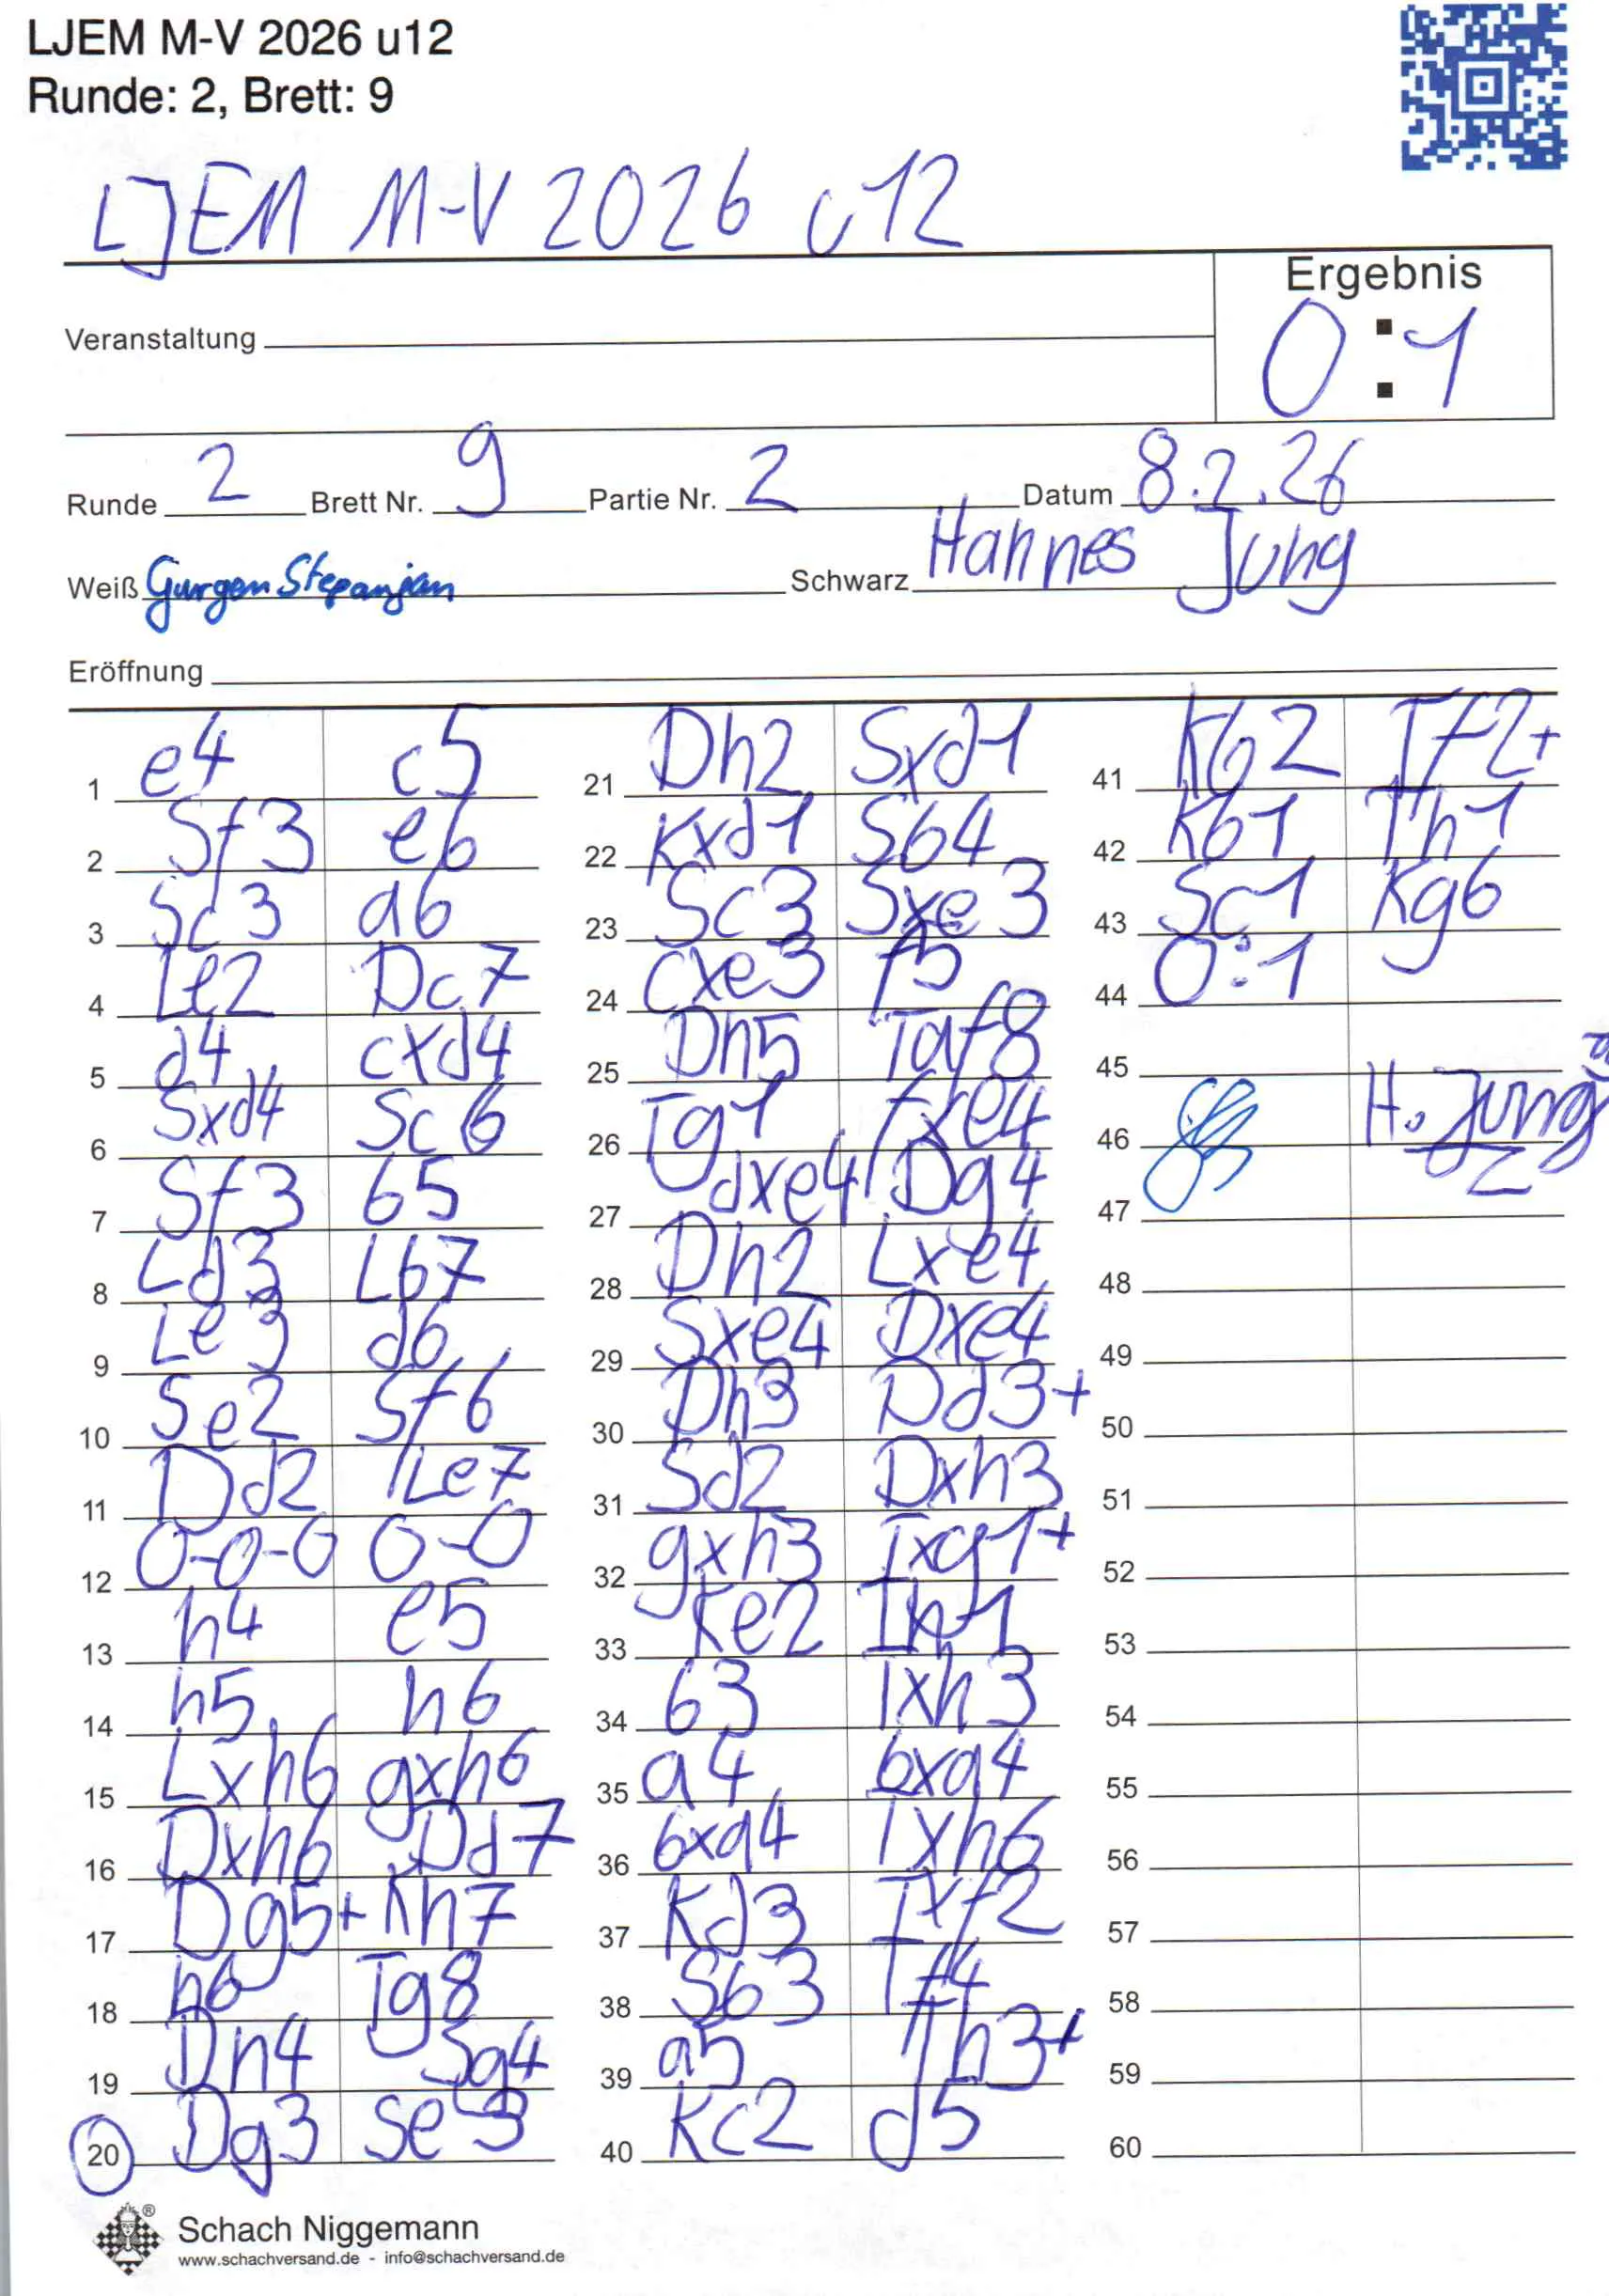 LJEM M-V 2026 u12
Runde: 2, Brett: 9
LJEM M-V 2026 u12
Ergebnis
0:1
Veranstaltung
Runde 2 Brett Nr. 9 Partie Nr. 2 Datum 8.2.26
Weiß Gurgen Stepanjan Schwarz Hannes Jung
Eröffnung
1 e4 c5
2 Sf3 e6
3 Sc3 a6
4 Le2 Dc7
5 d4 cxd4
6 Sxd4 Sc6
7 Sf3 b5
8 Ld3 Lb7
9 Le3 d6
10 Se2 Sf6
11 Dd2 Le7
12 0-0-0 0-0
13 h4 e5
14 h5 h6
15 Lxh6 gxh6
16 Dxh6 Dd7
17 Dg5+ Kh7
18 h6 Tg8
19 Dh4 Sg4
20 Dg3 Se3
21 Dh2 Sxd1
22 Kxd1 Sb4
23 Sc3 Sxe3
24 cxe3 f5
25 Dh5 Taf8
26 Tg1 fxe4
27 dxe4 Dg4
28 Dh2 Lxe4
29 Sxe4 Dxe4
30 Dh3 Dd3+
31 Sd2 Dxh3
32 gxh3 Txg1+
33 Ke2 Th1
34 b3 Txh3
35 a4 bxa4
36 bxa4 Txh6
37 Kd3 Txf2
38 Sb3 Tf4
39 a5 Th3+
40 Kc2 d5
41 Kb2 Tf2+
42 Kb1 Th1
43 Sc1 Kg6
44 0:1
45
46 H. Jung
47
48
49
50
51
52
53
54
55
56
57
58
59
60
Schach Niggemann
www.schachversand.de - info@schachversand.de